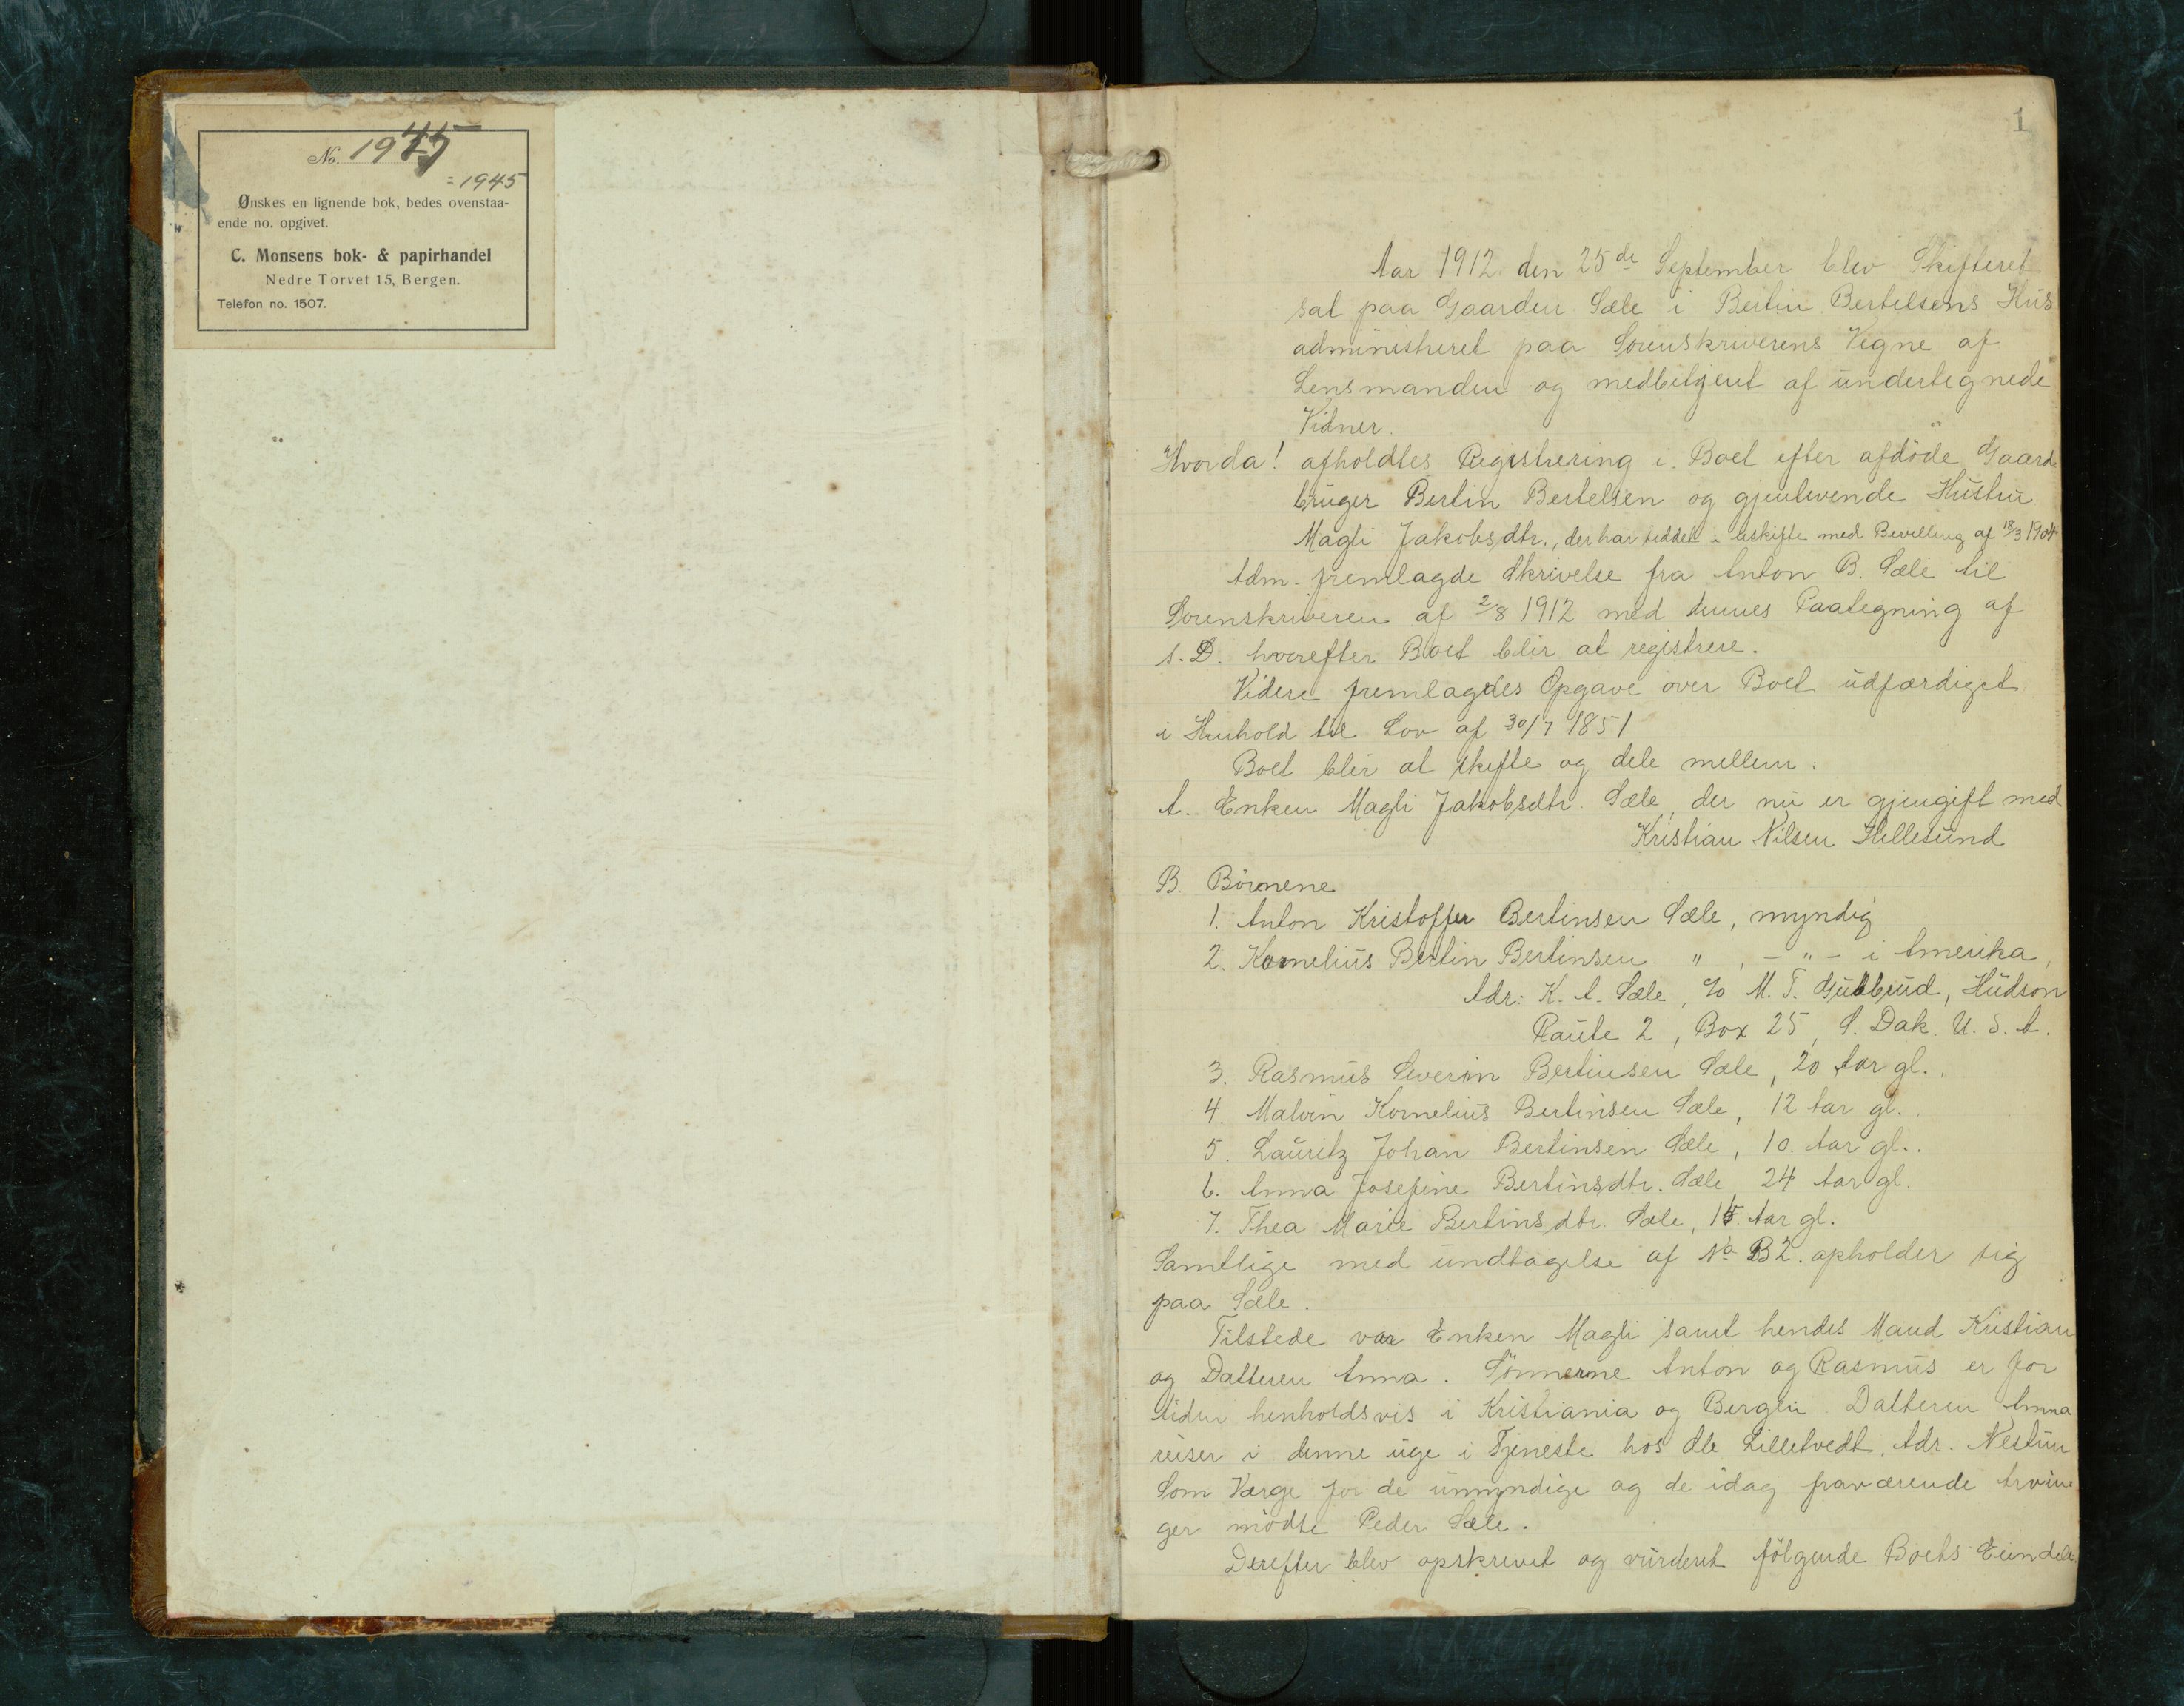 No. 1945
= 1945
Ønskes en lignende bok, bedes ovenstaa-
ende no. opgivet.
C. Monsens bok- & papirhandel
Nedre Torvet 15, Bergen.
Telefon no. 1507.
1
Aar 1912 den 25de September blev Skifteret
sat paa Gaarden Sæle i Bertin Bertelsens Hus
administreret paa Sorenskriverens Vegne af
Lensmanden og medbetjent af undertegnede
Vidner.
Hvorda! afholdtes Registrering i Boet efter afdöde Gaard
bruger Bertin Bertelsen og gjenlevende Hustru
Magli Jakobsdtr., der har siddet i uskifte med Bevilling af 18/3 1904
Adm. fremlagde Skrivelse fra Anton B. Sæle til
Sorenskriveren af 2/8 1912 med dennes Paategning af
s. D. hvorefter Boet blir at registrere.
Videre fremlagdes Opgave over Boet udfærdiget
i Henhold til Lov af 30/7 1851
Boet blir at skifte og dele mellem:
A. Enken Magli Jakobsdtr. Sæle, der nu er gjengift med
Kristian Nilsen Hillesund
B. Börnene
1. Anton Kristoffer Bertinsen Sæle, myndig
2. Kornelius Bertin Bertinsen " , - " - i Amerika,
Adr: K. A. Sæle, c/o M. T. Gubbrud, Hudson
Raute 2, Box 25, S. Dak. U. S. A.
3. Rasmus Severin Bertinsen Sæle, 20 Aar gl..
4. Malvin Kornelius Bertinsen Sæle, 12 Aar gl..
5. Lauritz Johan Bertinsen Sæle, 10. Aar gl..
6. Anna Josefine Bertinsdtr. Sæle, 24 Aar gl.
7. Thea Marie Bertinsdtr. Sæle, 15. Aar gl.
Samtlige med undtagelse af No B2. opholder sig
paa Sæle.
Tilstede var Enken Magli samt hendes Mand Kristian
og Datteren Anna. Sönnerne Anton og Rasmus er for
tiden henholdsvis i Kristiania og Bergen. Datteren Anna
reiser i denne uge i Tjeneste hos Ole Lilletvedt, Adr. Nestun
Som Værge for de umyndige og de idag fraværende Arvin
ger mödte Peder Sæle.
Derefter blev opskrevet og vurderet fölgende Boets Eiendele